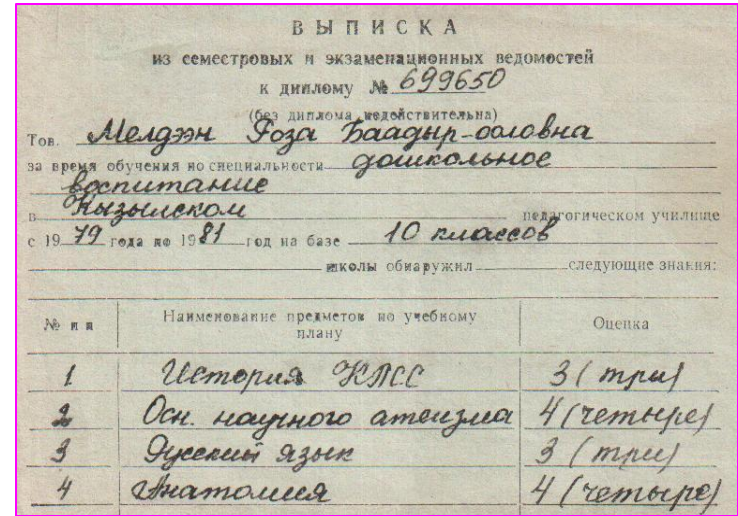 ВЫПИСКА
из семестровых и экзаменационных ведомостей
к диплому № 699650
(без диплома недействительна)
Тов. Мелдээн Роза Баадыр-ооловна
за время обучения по специальности дошкольное
воспитание
в Кызылском педагогическом училище
с 1979 года по 1981 год на базе 10 классов
школы обнаружил следующие знания:
№ п п Наименование предметов по учебному плану Оценка
1 История КПСС 3 (три)
2 Осн. научного атеизма 4 (четыре)
3 Русский язык 3 (три)
4 Анатомия 4 (четыре)